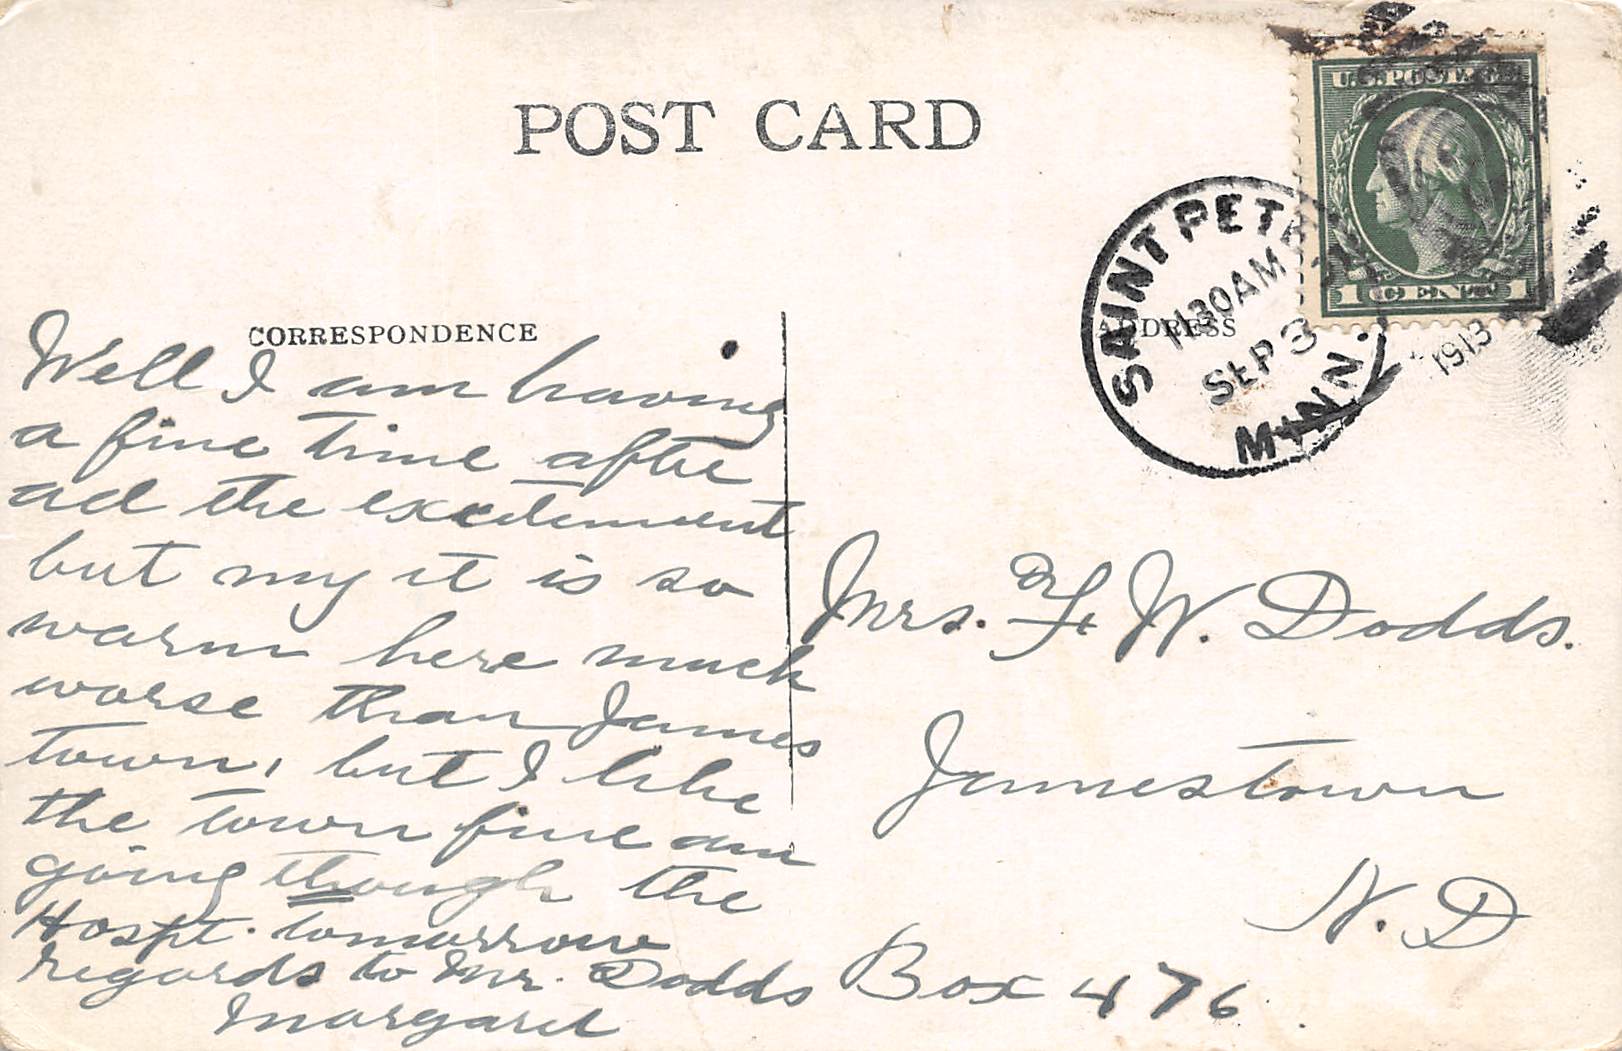 POST CARD
U.S. POSTAGE
1 CENT 1
SAINT PETER
1130AM
SEP 3
1913
MINN.
CORRESPONDENCE
ADDRESS
Well I am having
a fine time after
all the excitement
but my it is so
warm here much
worse than James
town, but I like
the town fine am
going though the
Hospt. tomorrow
regards to Mr. Dodds
Margaret
Mrs. F. W. Dodds.
Jamestown
N. D
Box 476.